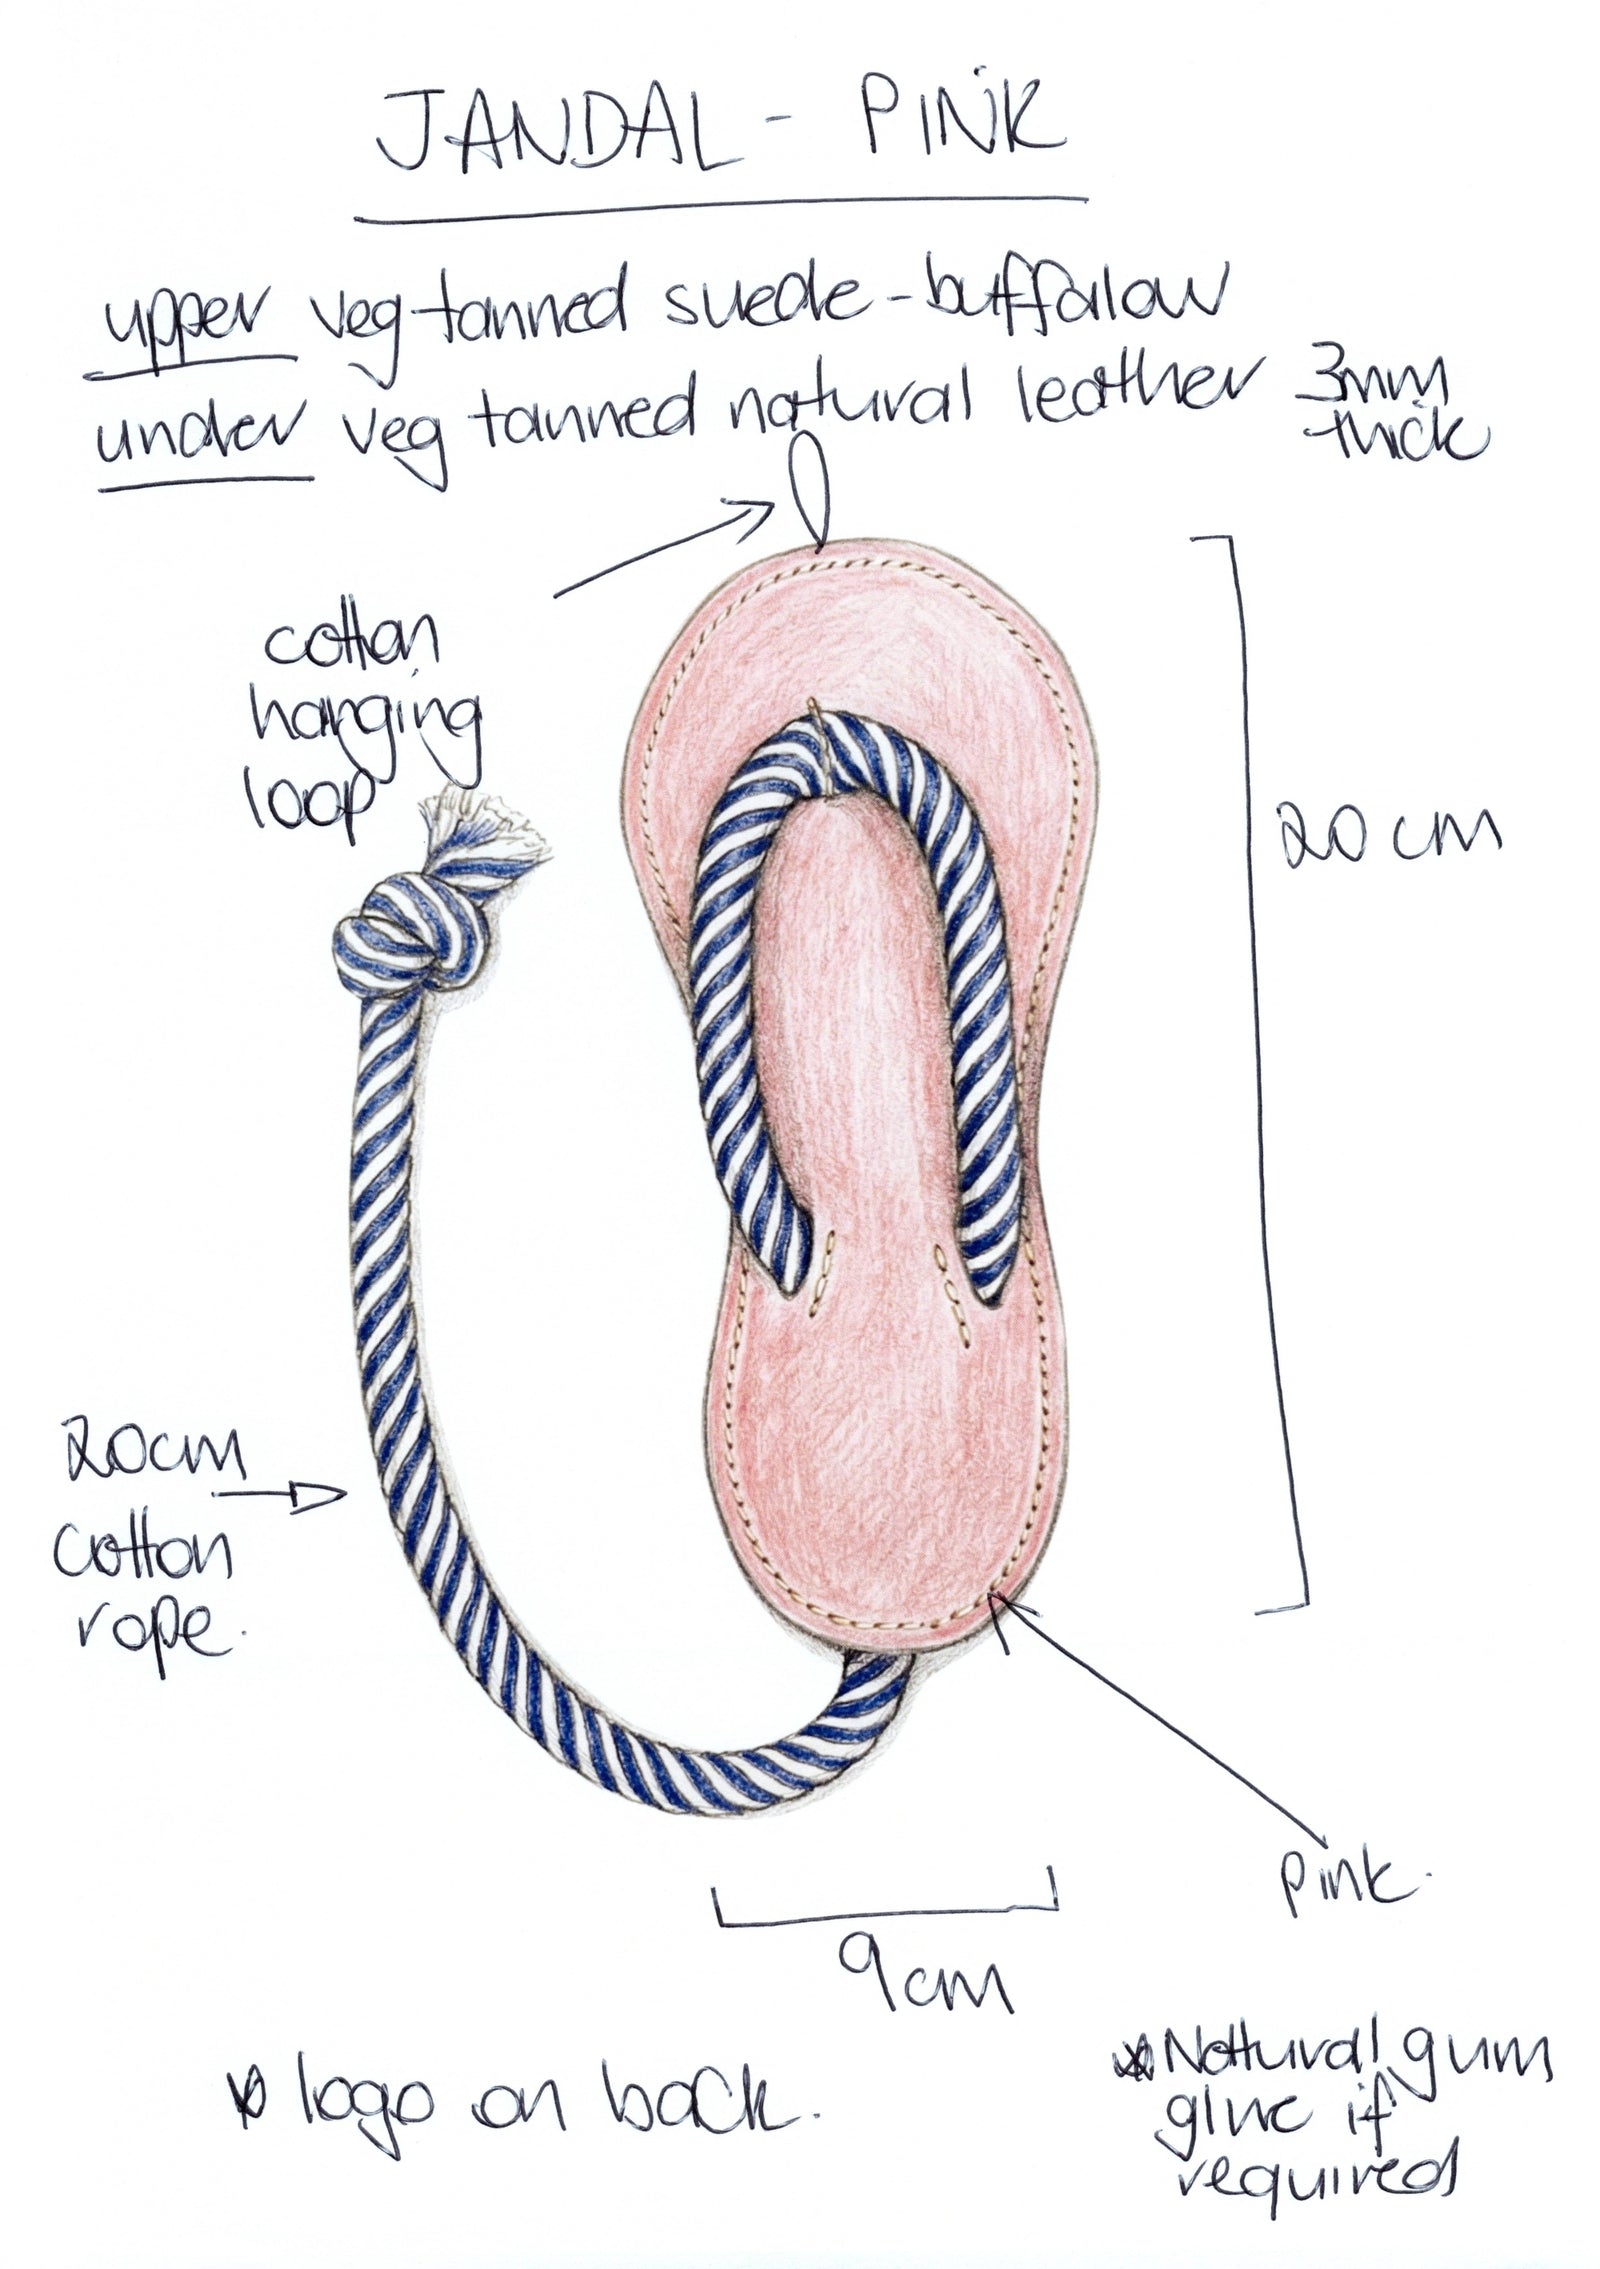 JANDAL - PINK
upper veg-tanned suede-buffalow
under veg tanned natural leather 3mm
thick
cotton
hanging
loop
20 cm
20cm
cotton
rope.
pink.
9cm
* logo on back.
* Natural gum
glue if
required